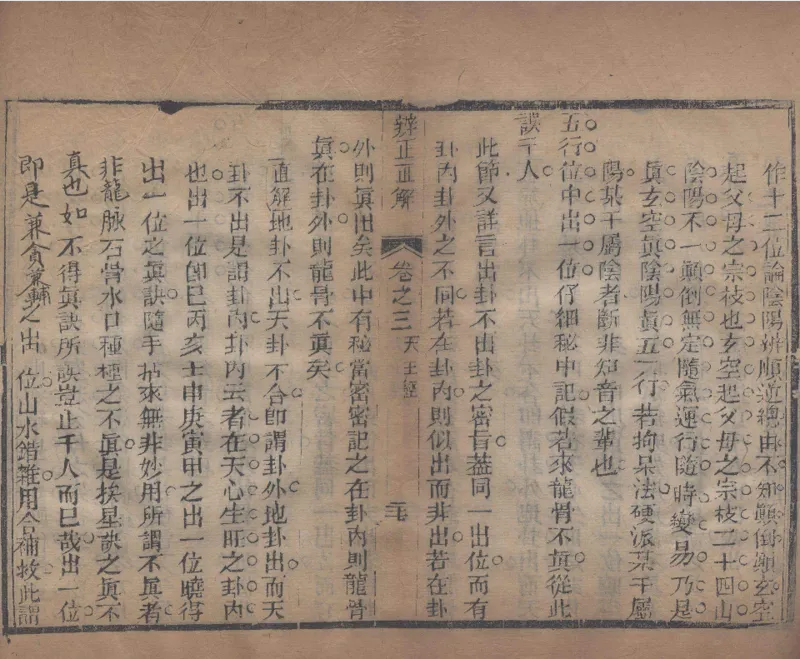 作十二位論陰陽辨順逆總由不知顛倒顛玄空
起父母之宗枝也玄空起父母之宗枝二十四山
陰陽不一顛倒無定隨氣運行隨時變易乃是
眞玄空眞陰陽眞五行若拘呆法硬派某干屬
陽某干屬陰者斷非知音之輩也
五行位中出一位仔細秘中記假若來龍骨不眞從此
誤千人
此節又詳言出卦不出卦之密旨葢同一出位而有
卦內卦外之不同若在卦內則似出而非出若在卦
辨正直解
卷之三
天玉經
三七
外則眞出矣此中有秘當密密記之在卦內則龍骨
眞在卦外則龍骨不眞矣
直解地卦不出天卦不合卽謂卦外地卦出而天
卦不出是謂卦內卦內云者在天心生旺之卦內
也出一位卽巳丙亥壬申庚寅甲之出一位曉得
出一位之眞訣隨手拈來無非妙用所謂不眞者
非龍脉石骨水口種種之不眞是挨星訣之眞不
眞也如不得眞訣所誤豈止千人而已哉出一位
即是兼貪兼輔之出 位山水錯雜用合補救此謂